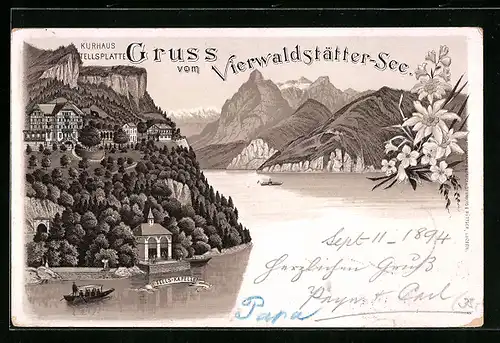 KURHAUS
TELLSPLATTE
Gruss
vom
Vierwaldstätter-See.
TELLS-KAPELLE
Sept 11 - 1894
Herzlichen Gruß
Papa